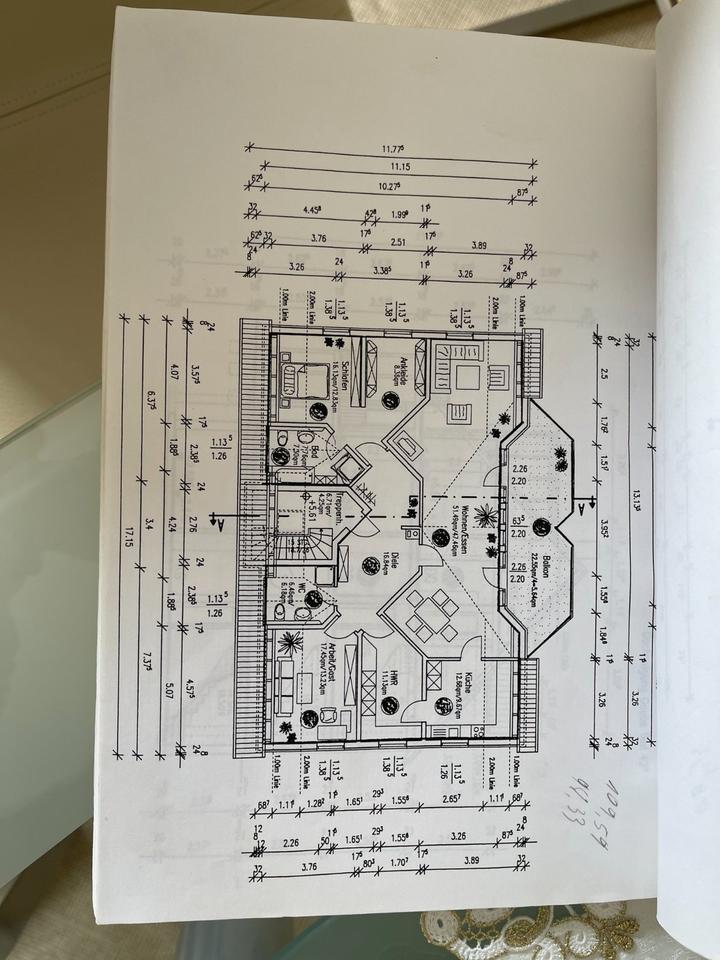 11.77⁵
11.15
62⁵
10.27⁵
87⁵
32
4.45⁸
42⁸
1.99⁸
11⁵
62⁵
32
3.76
17⁵
2.51
17⁵
3.89
32
24
8
3.26
24
3.38⁵
11⁵
3.26
24
8
87⁵
1.00m Linie
2.00m Linie
1.13⁵
1.38⁵
1.13⁵
1.38⁵
1.13⁵
1.38⁵
2.00m Linie
1.00m Linie
Schlafen
16.13qm/12.83qm
Ankleide
8.39qm
Bad
Treppenh.
6.71qm/
4.25qm
+5.61
Diele
16.84qm
Wohnen/Essen
51.49qm/47.46qm
Balkon
22.55qm/4=5.64qm
WC
6.46qm/
6.18qm
Arbeit/Gast
17.45qm/13.23qm
HWR
11.13qm
Küche
12.66qm/9.67qm
2.26
2.20
63⁵
2.20
2.26
2.20
A
A
24
8
3.57⁵
17⁵
2.38⁵
24
2.76
24
2.38⁵
17⁵
4.57⁵
24
8
1.13⁵
1.26
1.13⁵
1.26
4.07
1.88⁵
4.24
1.88⁵
5.07
6.37⁵
3.4
7.37⁵
17.15
24
8
2.5
1.76²
1.51⁷
3.95²
1.55⁸
1.84⁸
11⁵
3.26
24
8
32
13.13⁴
11⁵
3.26
32
1.00m Linie
2.00m Linie
1.13⁵
1.38⁵
1.13⁵
1.38⁵
1.13⁵
1.26
2.00m Linie
1.00m Linie
68⁷
1.11⁸
1.28²
11⁵
1.65¹
29³
1.55⁶
2.65⁷
1.11⁸
68⁷
12
8
12
2.26
50
11⁵
1.65¹
29³
1.55⁶
3.26
87⁵
24
8
32
3.76
17⁵
80³
1.70⁷
17⁵
3.89
32
109,59